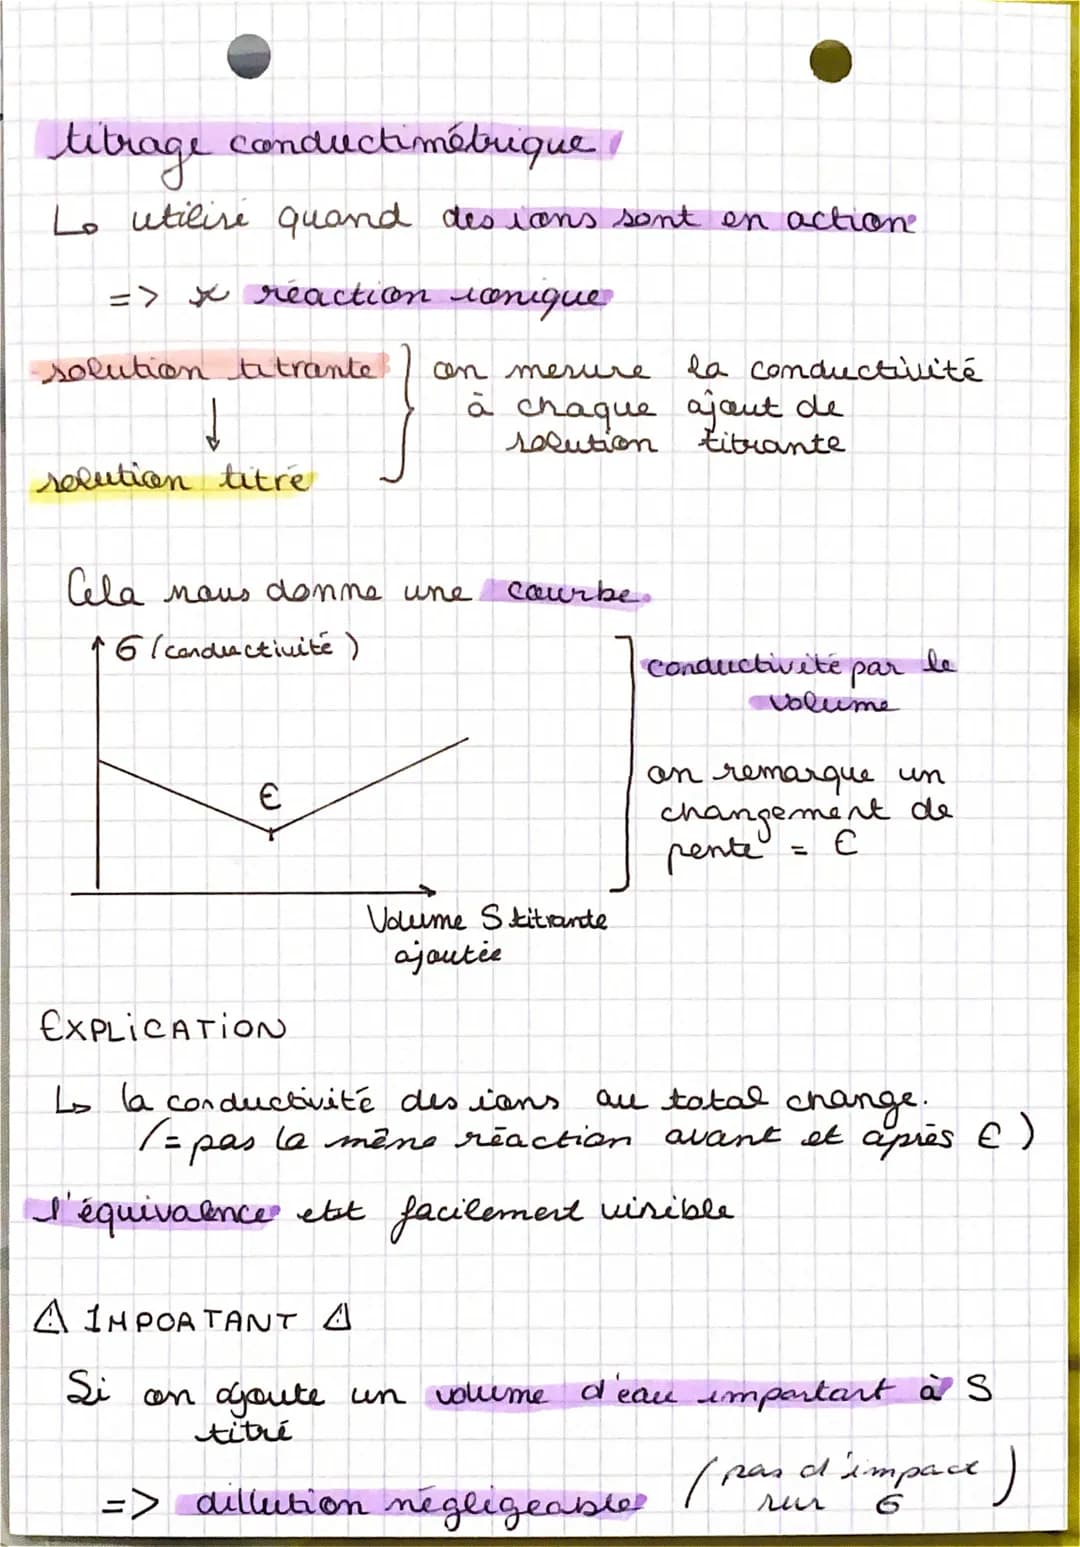 titrage conductimétrique
↳ utilisé quand des ions sont en action
=> * réaction ionique
solution titrante
↓
solution titré
on mesure la conductivité
à chaque ajout de
solution titrante
Cela nous donne une courbe.
σ (conductivité)
E
Volume S titrante
ajoutée
conductivité par le
volume
on remarque un
changement de
pente = E
EXPLICATION
↳ la conductivité des ions au total change.
(= pas la même réaction avant et après E)
l'équivalence est facilement visible
⚠ IMPORTANT ⚠
Si on ajoute un volume d'eau important à S
titré
=> dillution négligeable (pas d'impact
sur σ)